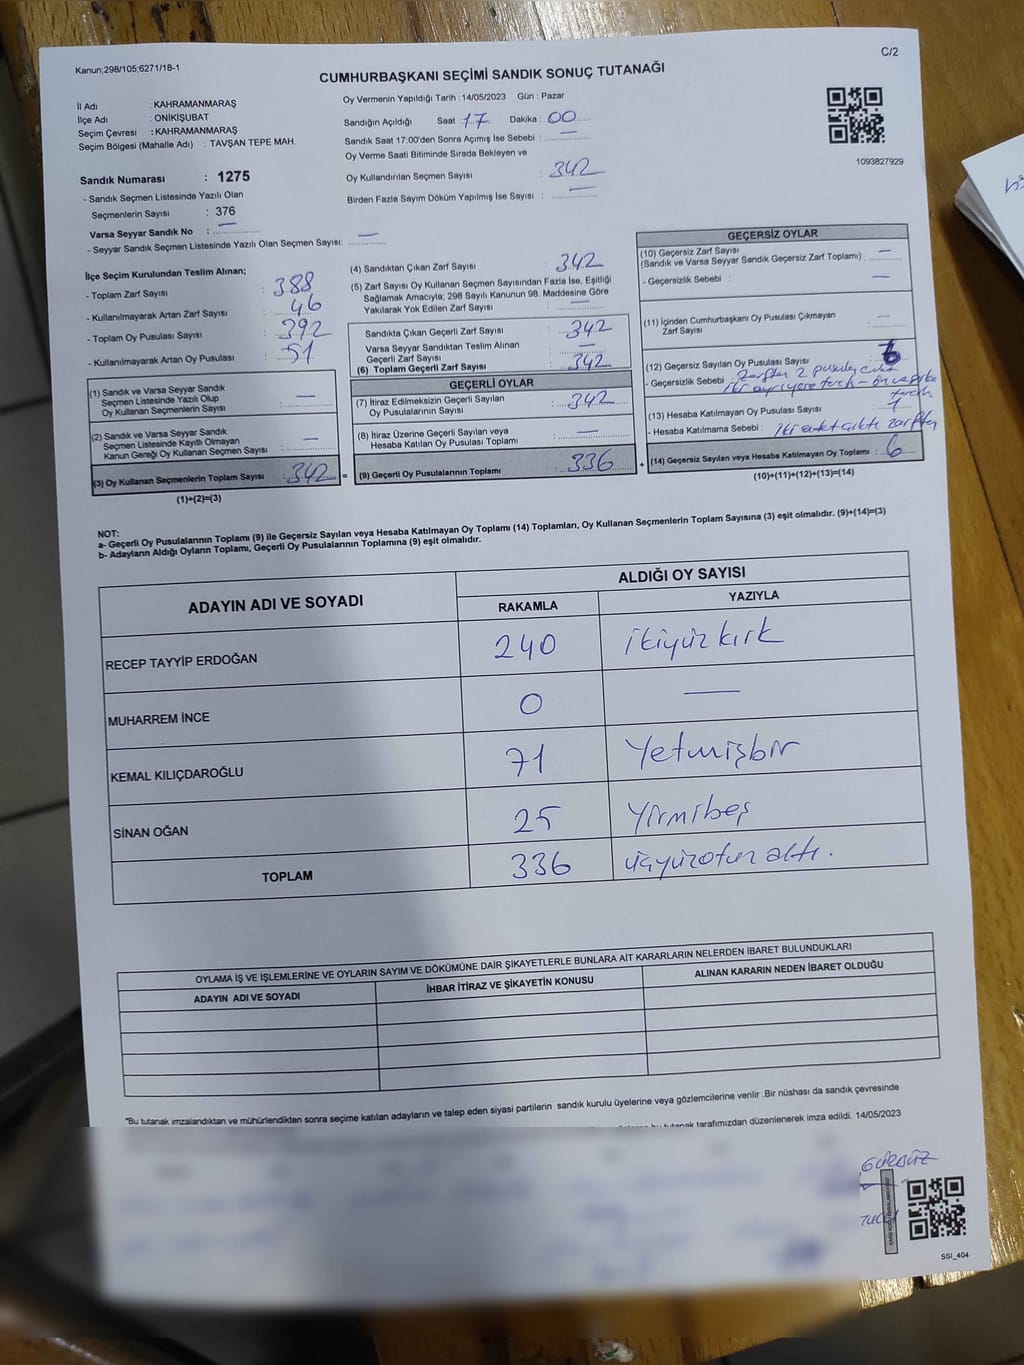 Kanun;298/105;6271/18-1
C/2
CUMHURBAŞKANI SEÇİMİ SANDIK SONUÇ TUTANAĞI
İl Adı : KAHRAMANMARAŞ
İlçe Adı : ONİKİŞUBAT
Seçim Çevresi : KAHRAMANMARAŞ
Seçim Bölgesi (Mahalle Adı) : TAVŞAN TEPE MAH.
Sandık Numarası : 1275
- Sandık Seçmen Listesinde Yazılı Olan
Seçmenlerin Sayısı : 376
Varsa Seyyar Sandık No : —
- Seyyar Sandık Seçmen Listesinde Yazılı Olan Seçmen Sayısı: —
Oy Vermenin Yapıldığı Tarih : 14/05/2023 Gün : Pazar
Sandığın Açıldığı Saat : 17 Dakika : 00
Sandık Saat 17:00'den Sonra Açımış İse Sebebi : —
Oy Verme Saati Bitiminde Sırada Bekleyen ve
Oy Kullandırılan Seçmen Sayısı : 342
Birden Fazla Sayım Döküm Yapılmış İse Sayısı : —
1093827929
İlçe Seçim Kurulundan Teslim Alınan;
- Toplam Zarf Sayısı : 388
- Kullanılmayarak Artan Zarf Sayısı : 46
- Toplam Oy Pusulası Sayısı : 392
- Kullanılmayarak Artan Oy Pusulası : 51
(1) Sandık ve Varsa Seyyar Sandık
Seçmen Listesinde Yazılı Olup
Oy Kullanan Seçmenlerin Sayısı : —
(2) Sandık ve Varsa Seyyar Sandık
Seçmen Listesinde Kayıtlı Olmayan
Kanun Gereği Oy Kullanan Seçmen Sayısı : —
(3) Oy Kullanan Seçmenlerin Toplam Sayısı : 342 =
(1)+(2)=(3)
(4) Sandıktan Çıkan Zarf Sayısı : 342
(5) Zarf Sayısı Oy Kullanan Seçmen Sayısından Fazla İse, Eşitliği
Sağlamak Amacıyla; 298 Sayılı Kanunun 98. Maddesine Göre
Yakılarak Yok Edilen Zarf Sayısı : —
Sandıkta Çıkan Geçerli Zarf Sayısı : 342
Varsa Seyyar Sandıktan Teslim Alınan
Geçerli Zarf Sayısı : —
(6) Toplam Geçerli Zarf Sayısı : 342
GEÇERLİ OYLAR
(7) İtiraz Edilmeksizin Geçerli Sayılan
Oy Pusulalarının Sayısı : 342
(8) İtiraz Üzerine Geçerli Sayılan veya
Hesaba Katılan Oy Pusulası Toplamı : —
(9) Geçerli Oy Pusulalarının Toplamı : 336 +
GEÇERSİZ OYLAR
(10) Geçersiz Zarf Sayısı
(Sandık ve Varsa Seyyar Sandık Geçersiz Zarf Toplamı) : —
- Geçersizlik Sebebi : —
(11) İçinden Cumhurbaşkanı Oy Pusulası Çıkmayan
Zarf Sayısı : —
(12) Geçersiz Sayılan Oy Pusulası Sayısı
- Geçersizlik Sebebi : Zarftan 2 pusula
iki ayrı yere tercih
tercih
(13) Hesaba Katılmayan Oy Pusulası Sayısı : 1
- Hesaba Katılmama Sebebi : iki adet çıktı zarftan
(14) Geçersiz Sayılan veya Hesaba Katılmayan Oy Toplamı : 6
(10)+(11)+(12)+(13)=(14)
NOT:
a- Geçerli Oy Pusulalarının Toplamı (9) ile Geçersiz Sayılan veya Hesaba Katılmayan Oy Toplamı (14) Toplamları, Oy Kullanan Seçmenlerin Toplam Sayısına (3) eşit olmalıdır. (9)+(14)=(3)
b- Adayların Aldığı Oyların Toplamı, Geçerli Oy Pusulalarının Toplamına (9) eşit olmalıdır.
ADAYIN ADI VE SOYADI
ALDIĞI OY SAYISI
RAKAMLA YAZIYLA
RECEP TAYYİP ERDOĞAN 240 ikiyüz kırk
MUHARREM İNCE 0 —
KEMAL KILIÇDAROĞLU 71 Yetmişbir
SİNAN OĞAN 25 Yirmibeş
TOPLAM 336 üçyüzotuz altı.
OYLAMA İŞ VE İŞLEMLERİNE VE OYLARIN SAYIM VE DÖKÜMÜNE DAİR ŞİKAYETLERLE BUNLARA AİT KARARLARIN NELERDEN İBARET BULUNDUKLARI
ADAYIN ADI VE SOYADI İHBAR İTİRAZ VE ŞİKAYETİN KONUSU ALINAN KARARIN NEDEN İBARET OLDUĞU
*Bu tutanak imzalandıktan ve mühürlendikten sonra seçime katılan adayların ve talep eden siyasi partilerin sandık kurulu üyelerine veya gözlemcilerine verilir .Bir nüshası da sandık çevresinde
bu tutanak tarafımızdan düzenlenerek imza edildi. 14/05/2023
GÜRBÜZ
SSI_404